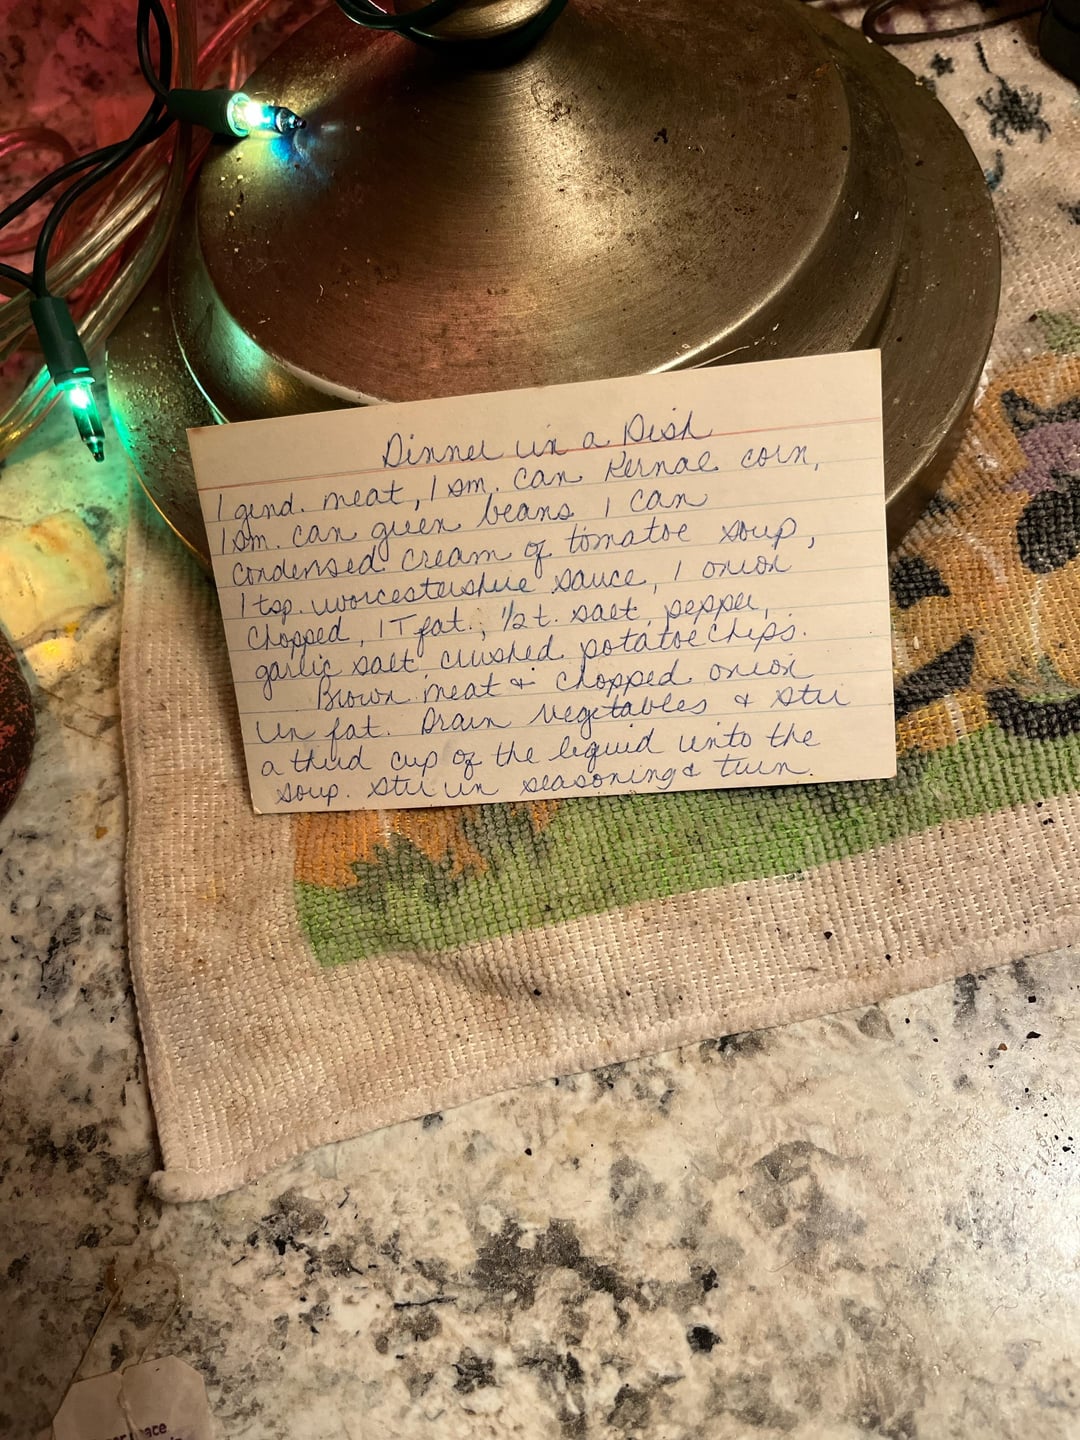 Dinner in a Dish
1 grnd. meat, 1 sm. can Kernal corn,
1 sm. can green beans 1 can
condensed cream of tomatoe soup,
1 tsp. worcestershire sauce, 1 onion
chopped, 1 T fat., 1/2 t. salt, pepper,
garlic salt crushed potatoe chips.
Brown meat & chopped onion
in fat. Drain vegetables & stir
a third cup of the liquid into the
soup. Stir in seasoning & turn.
peace